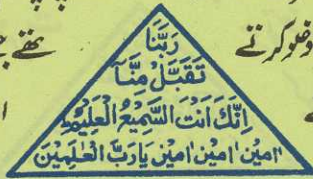 وغلو کرتے
تھے
رَبَّنَا
تَقَبَّلْ مِنَّآ
اِنَّكَ اَنْتَ السَّمِيْعُ الْعَلِيْمُ
اٰمِيْن اٰمِيْن اٰمِيْن يَارَبَّ الْعٰلَمِيْنَ